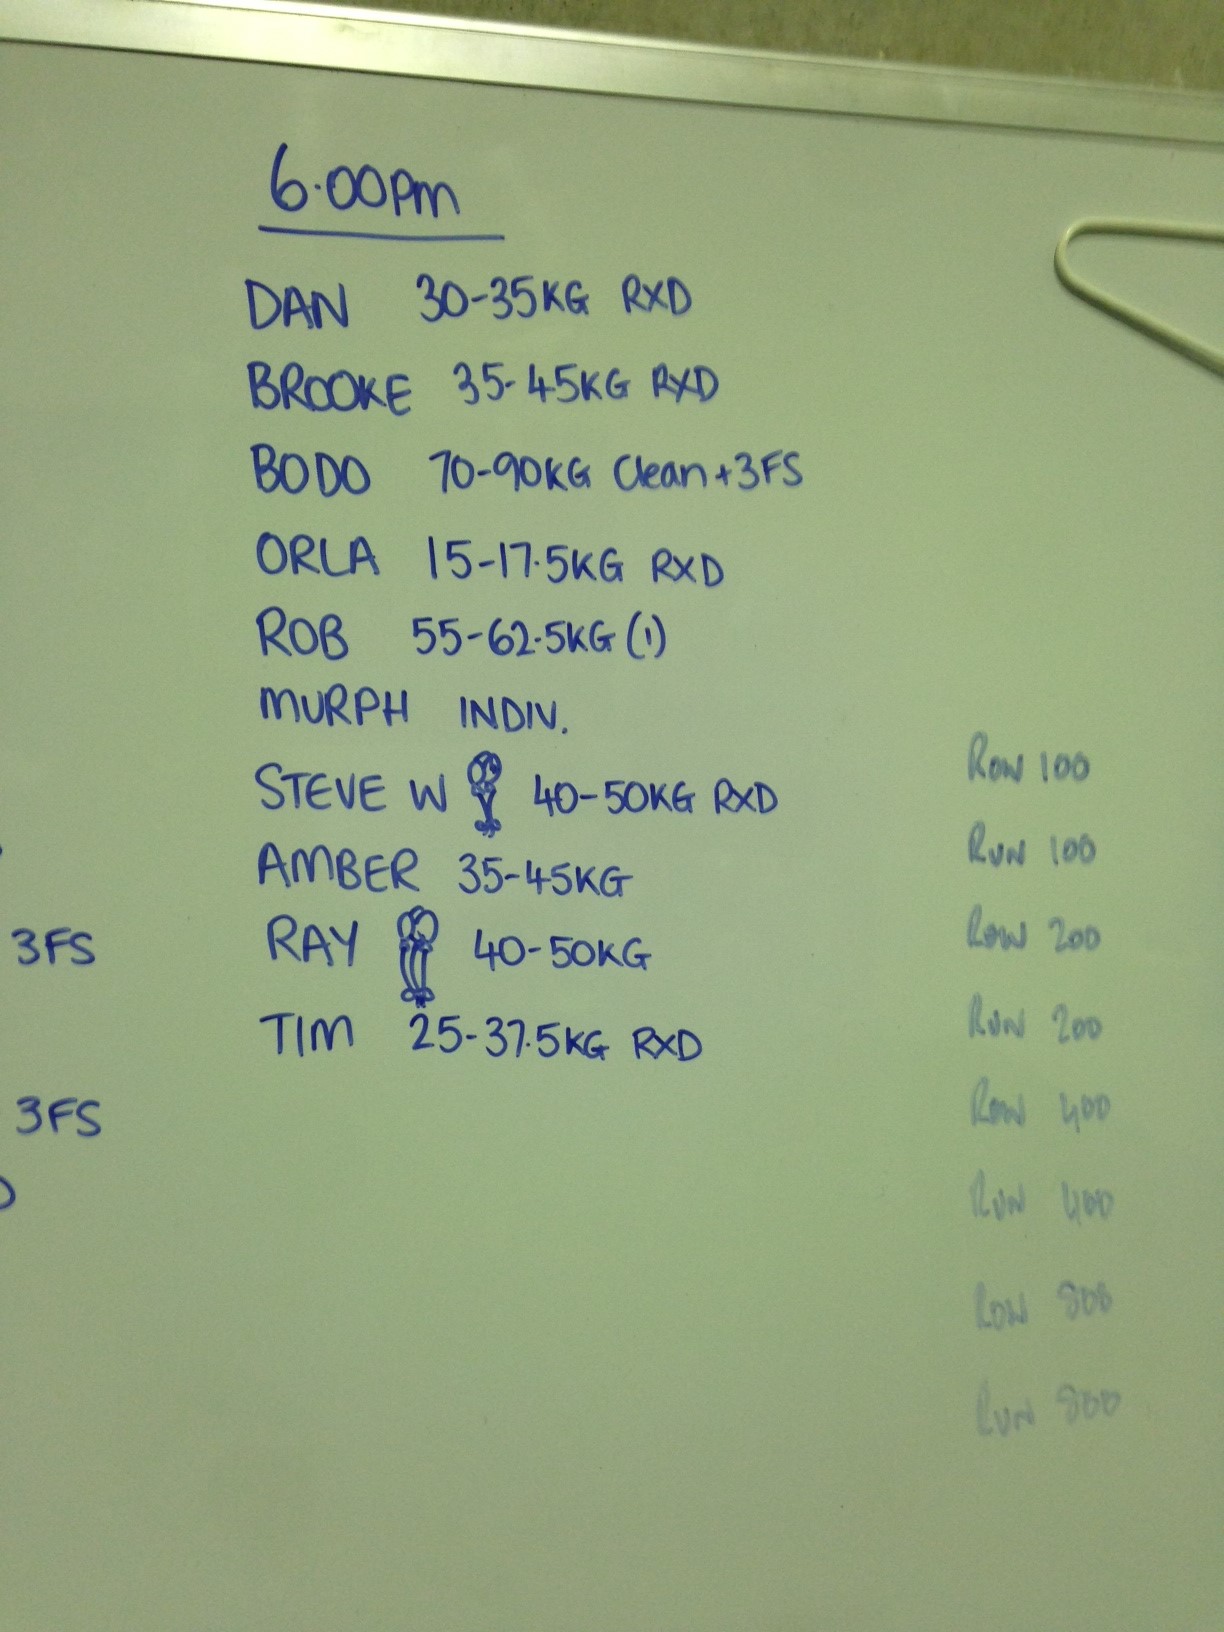 6.00pm
DAN 30-35KG RXD
BROOKE 35-45KG RXD
BODO 70-90KG Clean+3FS
ORLA 15-17.5KG RXD
ROB 55-62.5KG (1)
MURPH INDIV.
STEVE W 40-50KG RXD
AMBER 35-45KG
RAY 40-50KG
TIM 25-37.5KG RXD
3FS
3FS
Row 100
Run 100
Row 200
Run 200
Row 400
Run 400
Row 800
Run 800